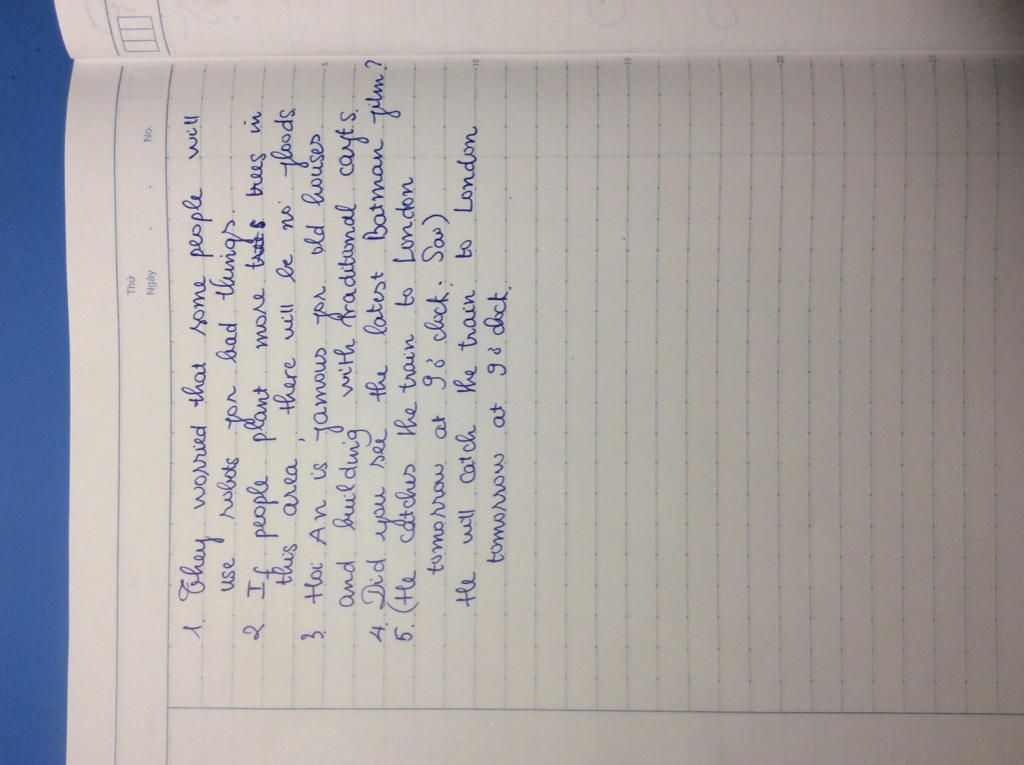 Thứ
Ngày
No.
1. They worried that some people will
use robots for bad things.
2 If people plant more trees in
this area, there will be no floods.
3. Hoi An is famous for old houses
and building with traditional cayts.
4. Did you see the latest Batman film?
5. (He catches the train to London
tomorrow at 9 o'clock: Sai)
He will catch the train to London
tomorrow at 9 o'clock.
5
10
15
20
25